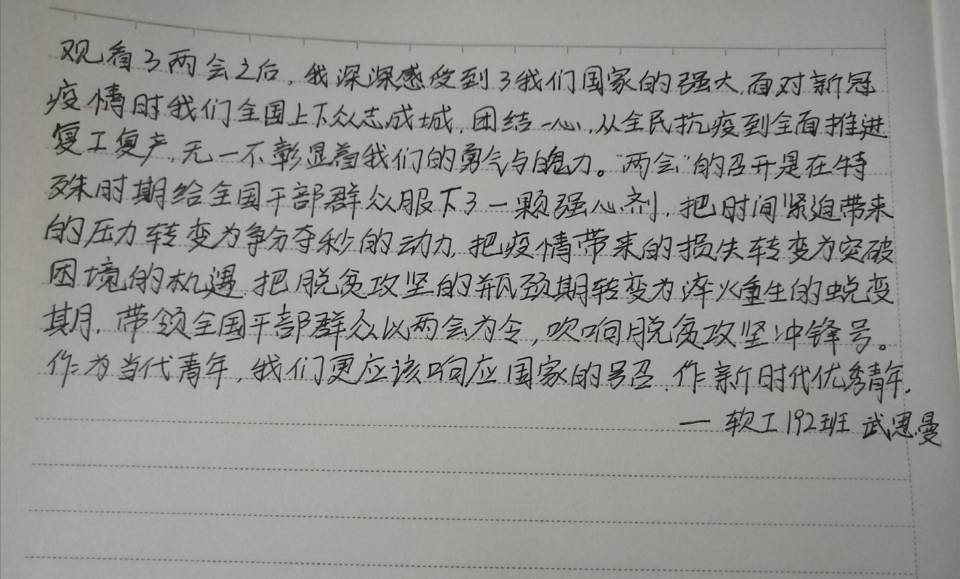 观看了两会之后，我深深感受到了我们国家的强大，面对新冠
疫情时我们全国上下众志成城，团结一心，从全民抗疫到全面推进
复工复产，无一不彰显着我们的勇气与魄力。“两会”的召开是在特
殊时期给全国干部群众服下了一颗强心剂，把时间紧迫带来
的压力转变为争分夺秒的动力，把疫情带来的损失转变为突破
困境的机遇，把脱贫攻坚的瓶颈期转变为淬火重生的蜕变
期，带领全国干部群众以两会为令，吹响脱贫攻坚冲锋号。
作为当代青年，我们更应该响应国家的号召，作新时代优秀青年。
— 软工192班 武思曼